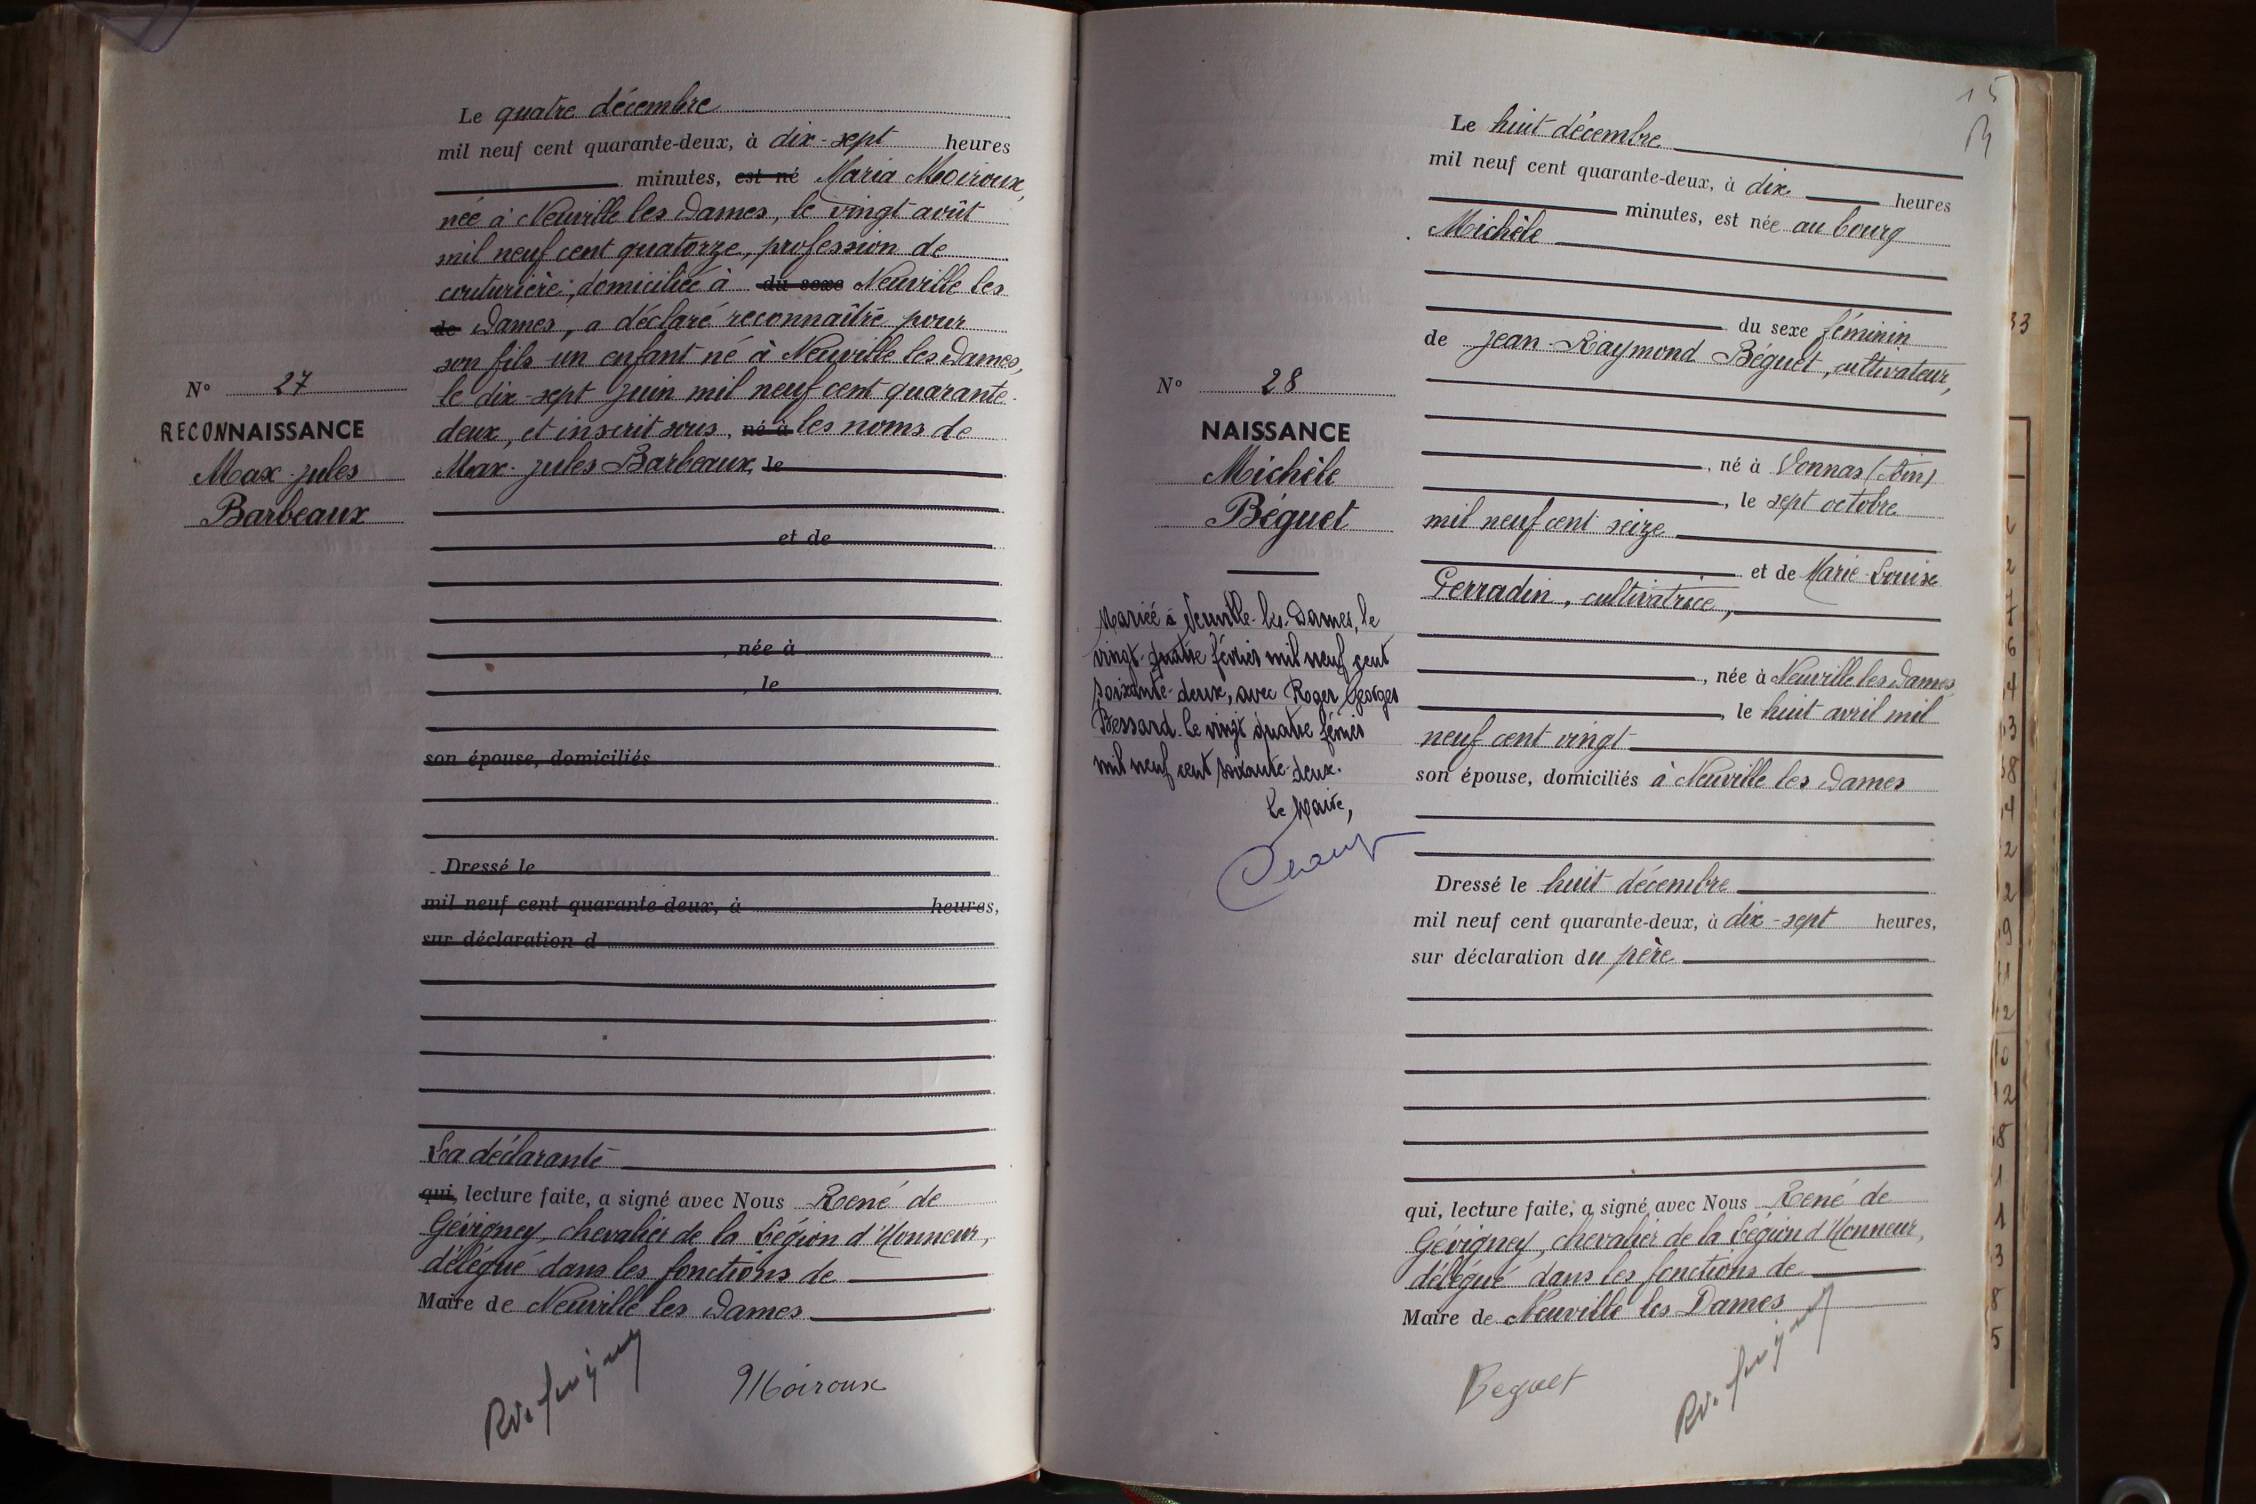 Le quatre décembre
mil neuf cent quarante-deux, à dix-sept heures
minutes, est né Maria Moiroux,
née à Neuville les Dames, le vingt août
mil neuf cent quatorze, profession de
couturière, domiciliée à du sexe Neuville les
de Dames, a déclaré reconnaître pour
son fils un enfant né à Neuville les Dames,
le dix-sept juin mil neuf cent quarante-
deux, et inscrit sous né à les noms de
Max-Jules Barbeaux, le
et de
, née à
, le
son épouse, domiciliés
Dressé le
mil neuf cent quarante-deux, à heures,
sur déclaration d
La déclarante
qui, lecture faite, a signé avec Nous René de
Gévigney, chevalier de la Légion d'Honneur,
délégué dans les fonctions de
Maire de Neuville les Dames
Moiroux
N° 27
RECONNAISSANCE
Max-Jules
Barbeaux
15
Le huit décembre
mil neuf cent quarante-deux, à dix heures
minutes, est née au bourg
Michèle
du sexe féminin
de Jean-Raymond Béguet, cultivateur,
, né à Vonnas (Ain)
, le sept octobre
mil neuf cent seize
et de Marie-Louise
Perradin, cultivatrice,
, née à Neuville les Dames
, le huit avril mil
neuf cent vingt
son épouse, domiciliés à Neuville les Dames
Dressé le huit décembre
mil neuf cent quarante-deux, à dix-sept heures,
sur déclaration du père
qui, lecture faite, a signé avec Nous René de
Gévigney, chevalier de la Légion d'Honneur,
délégué dans les fonctions de
Maire de Neuville les Dames
Beguet
N° 28
NAISSANCE
Michèle
Béguet
Mariée à Neuville-les-Dames, le
vingt-quatre février mil neuf cent
soixante-deux, avec Roger Georges
Bessard. Le vingt quatre février
mil neuf cent soixante-deux.
Le Maire,
33